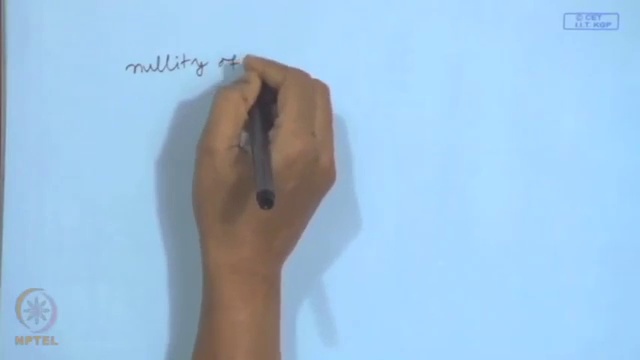 © CET
I.I.T. KGP
nullity of
NPTEL